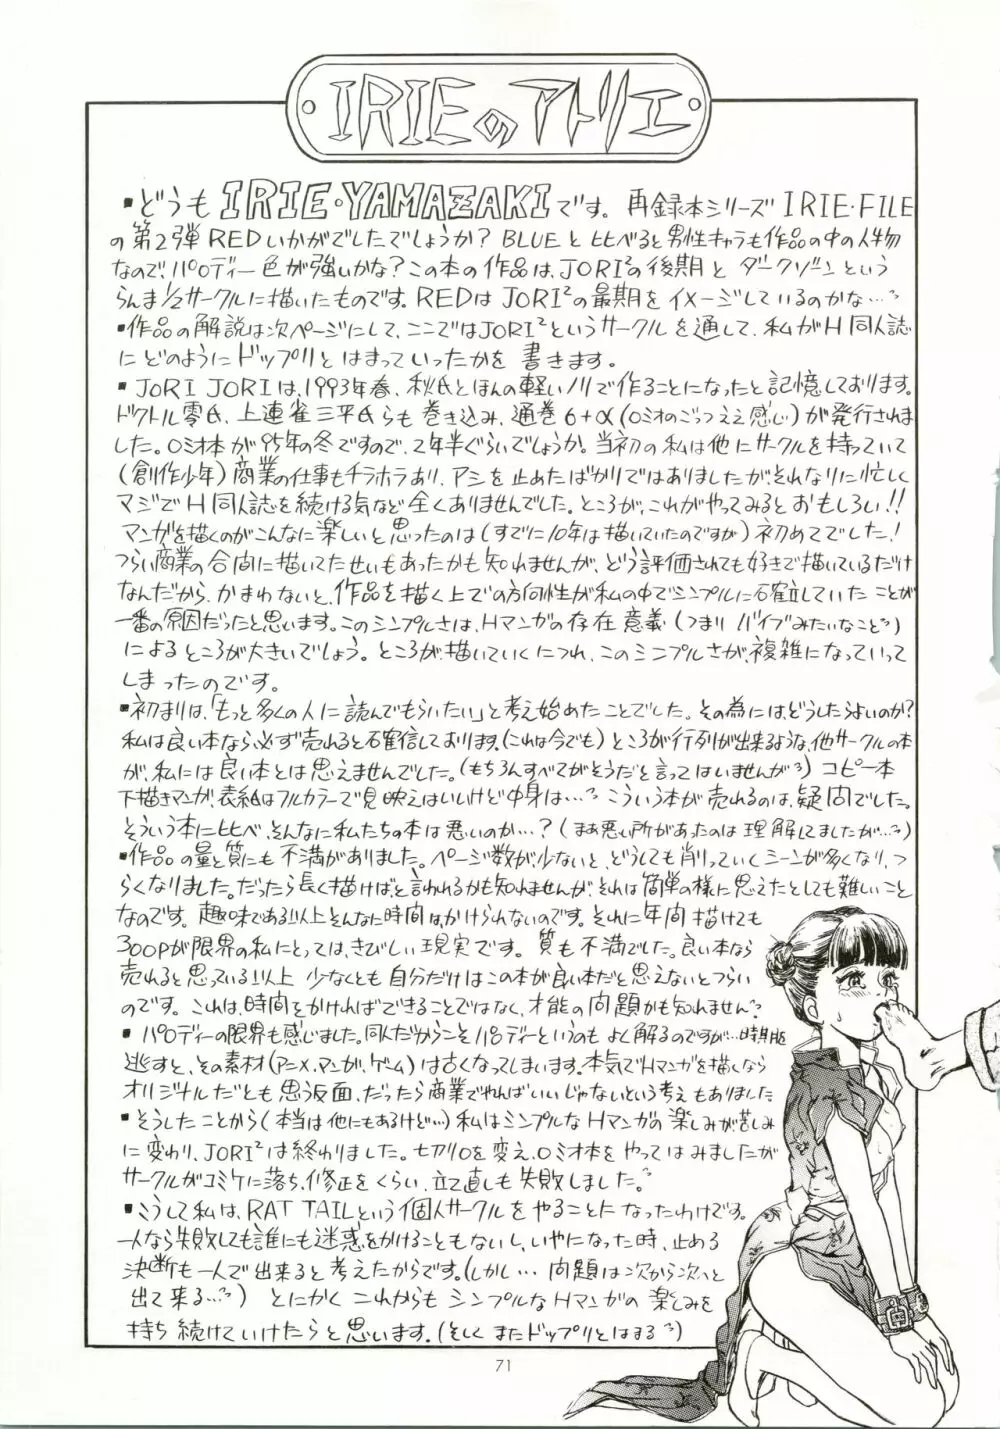 IRIEのアトリエ
・どうも IRIE・YAMAZAKIです。 再録本シリーズ IRIE・FILE
の第2弾 REDいかがでしたでしょうか? BLUEと比べると男性キャラも作品の中の人物
なので、パロディー色が強いかな?この本の作品は、JORI²の後期と ダークゾーンという
らんま1/2サークルに描いたものです。REDはJORI²の最期をイメージしているのかな…
・作品の解説は次ページにして、ここではJORI²というサークルを通して、私がH同人誌
にどのようにドップリとはまっていったかを 書きます。
・JORI JORIは、1993年春、秋氏とほんの軽いノリで作ることになったと記憶しております。
ドクトル零氏、上連雀三平氏らも巻き込み、通巻6+α(ロミオのごっつええ感じ)が発行されま
した。ロミオ本が95年の冬ですので、2年半ぐらいでしょうか。当初の私は他にサークルを持っていて
(創作少年)商業の仕事もチラホラあり、アシを止めたばかりではありましたが、それなりに忙しく
マジでH同人誌を続ける気など全くありませんでした。ところが、これがやってみるとおもしろい!!
マンガを描くのがこんなに楽しいと思ったのは(すでに10年は描いていたのですが)初めてでした!
つらい商業の合間に描いてたせいもあったかも知れませんが、どう評価されても好きで描いているだけ
なんだから、かまわないと、作品を描く上での方向性が私の中でシンプルに確立していたことが
一番の原因だったと思います。このシンプルさは、Hマンガの存在意義(つまりバイブみたいなこと)
によるところが大きいでしょう。ところが、描いていくにつれ、このシンプルさが、複雑になっていって
しまったのです。
・初まりは、「もっと多くの人に読んでもらいたい」と考え始めたことでした。その為には、どうしたらよいのか?
私は良い本なら必ず売れると確信しております。(これは今でも)ところが行列が出来るような、他サークルの本
が、私には良い本とは思えませんでした。(もちろんすべてがそうだと言ってはいませんが)コピー本
下描きマンガ、表紙はフルカラーで見映えはいいけど中身は… こういう本が売れるのは、疑問でした。
そういう本に比べ、そんなに私たちの本は悪いのか…?(まあ悪い所があったのは理解してましたが…)
・作品の量と質にも不満がありました。ページ数が少ないと、どうしても削っていくシーンが多くなり、つ
らくなりました。だったら長く描けば、と言われるかも知れませんが、それは簡単の様に思えたとしても難しいこと
なのです。趣味である以上そんなに時間はかけられないのです。それに年間描けても
300Pが限界の私にとっては、きびしい現実です。質も不満でした。良い本なら
売れると思っている以上 少なくとも自分だけはこの本が良い本だと思えないとつらい
のです。これは、時間をかければできることではなく、才能の問題かも知れません?
・パロディーの限界も感じました。同人だからこそパロディーというのもよく解るのですが…時期
逃すと、その素材(アニメ、マンガ、ゲーム)は古くなってしまいます。本気でHマンガを描くなら
オリジナルだとも思う反面、だったら商業でやればいいじゃないという考えもありました
・そうしたことから(本当は他にもあるけど…)私はシンプルなHマンガの楽しみが苦しみ
に変わり、JORI²は終わりました。七切り口を変え、ロミオ本をやってはみましたが
サークルがコミケに落ち、修正をくらい、立て直しも失敗しました。
・こうして私は、RAT TAILという個人サークルをやることになったわけです。
一人なら失敗しても誰にも迷惑をかけることもないし、いやになった時、止める
決断も一人で出来ると考えたからです。(しかし… 問題は次から次へと
出て来る…) とにかくこれからもシンプルなHマンガの楽しみを
持ち続けていけたらと思います。(そしてまたドップリとはまる)
71